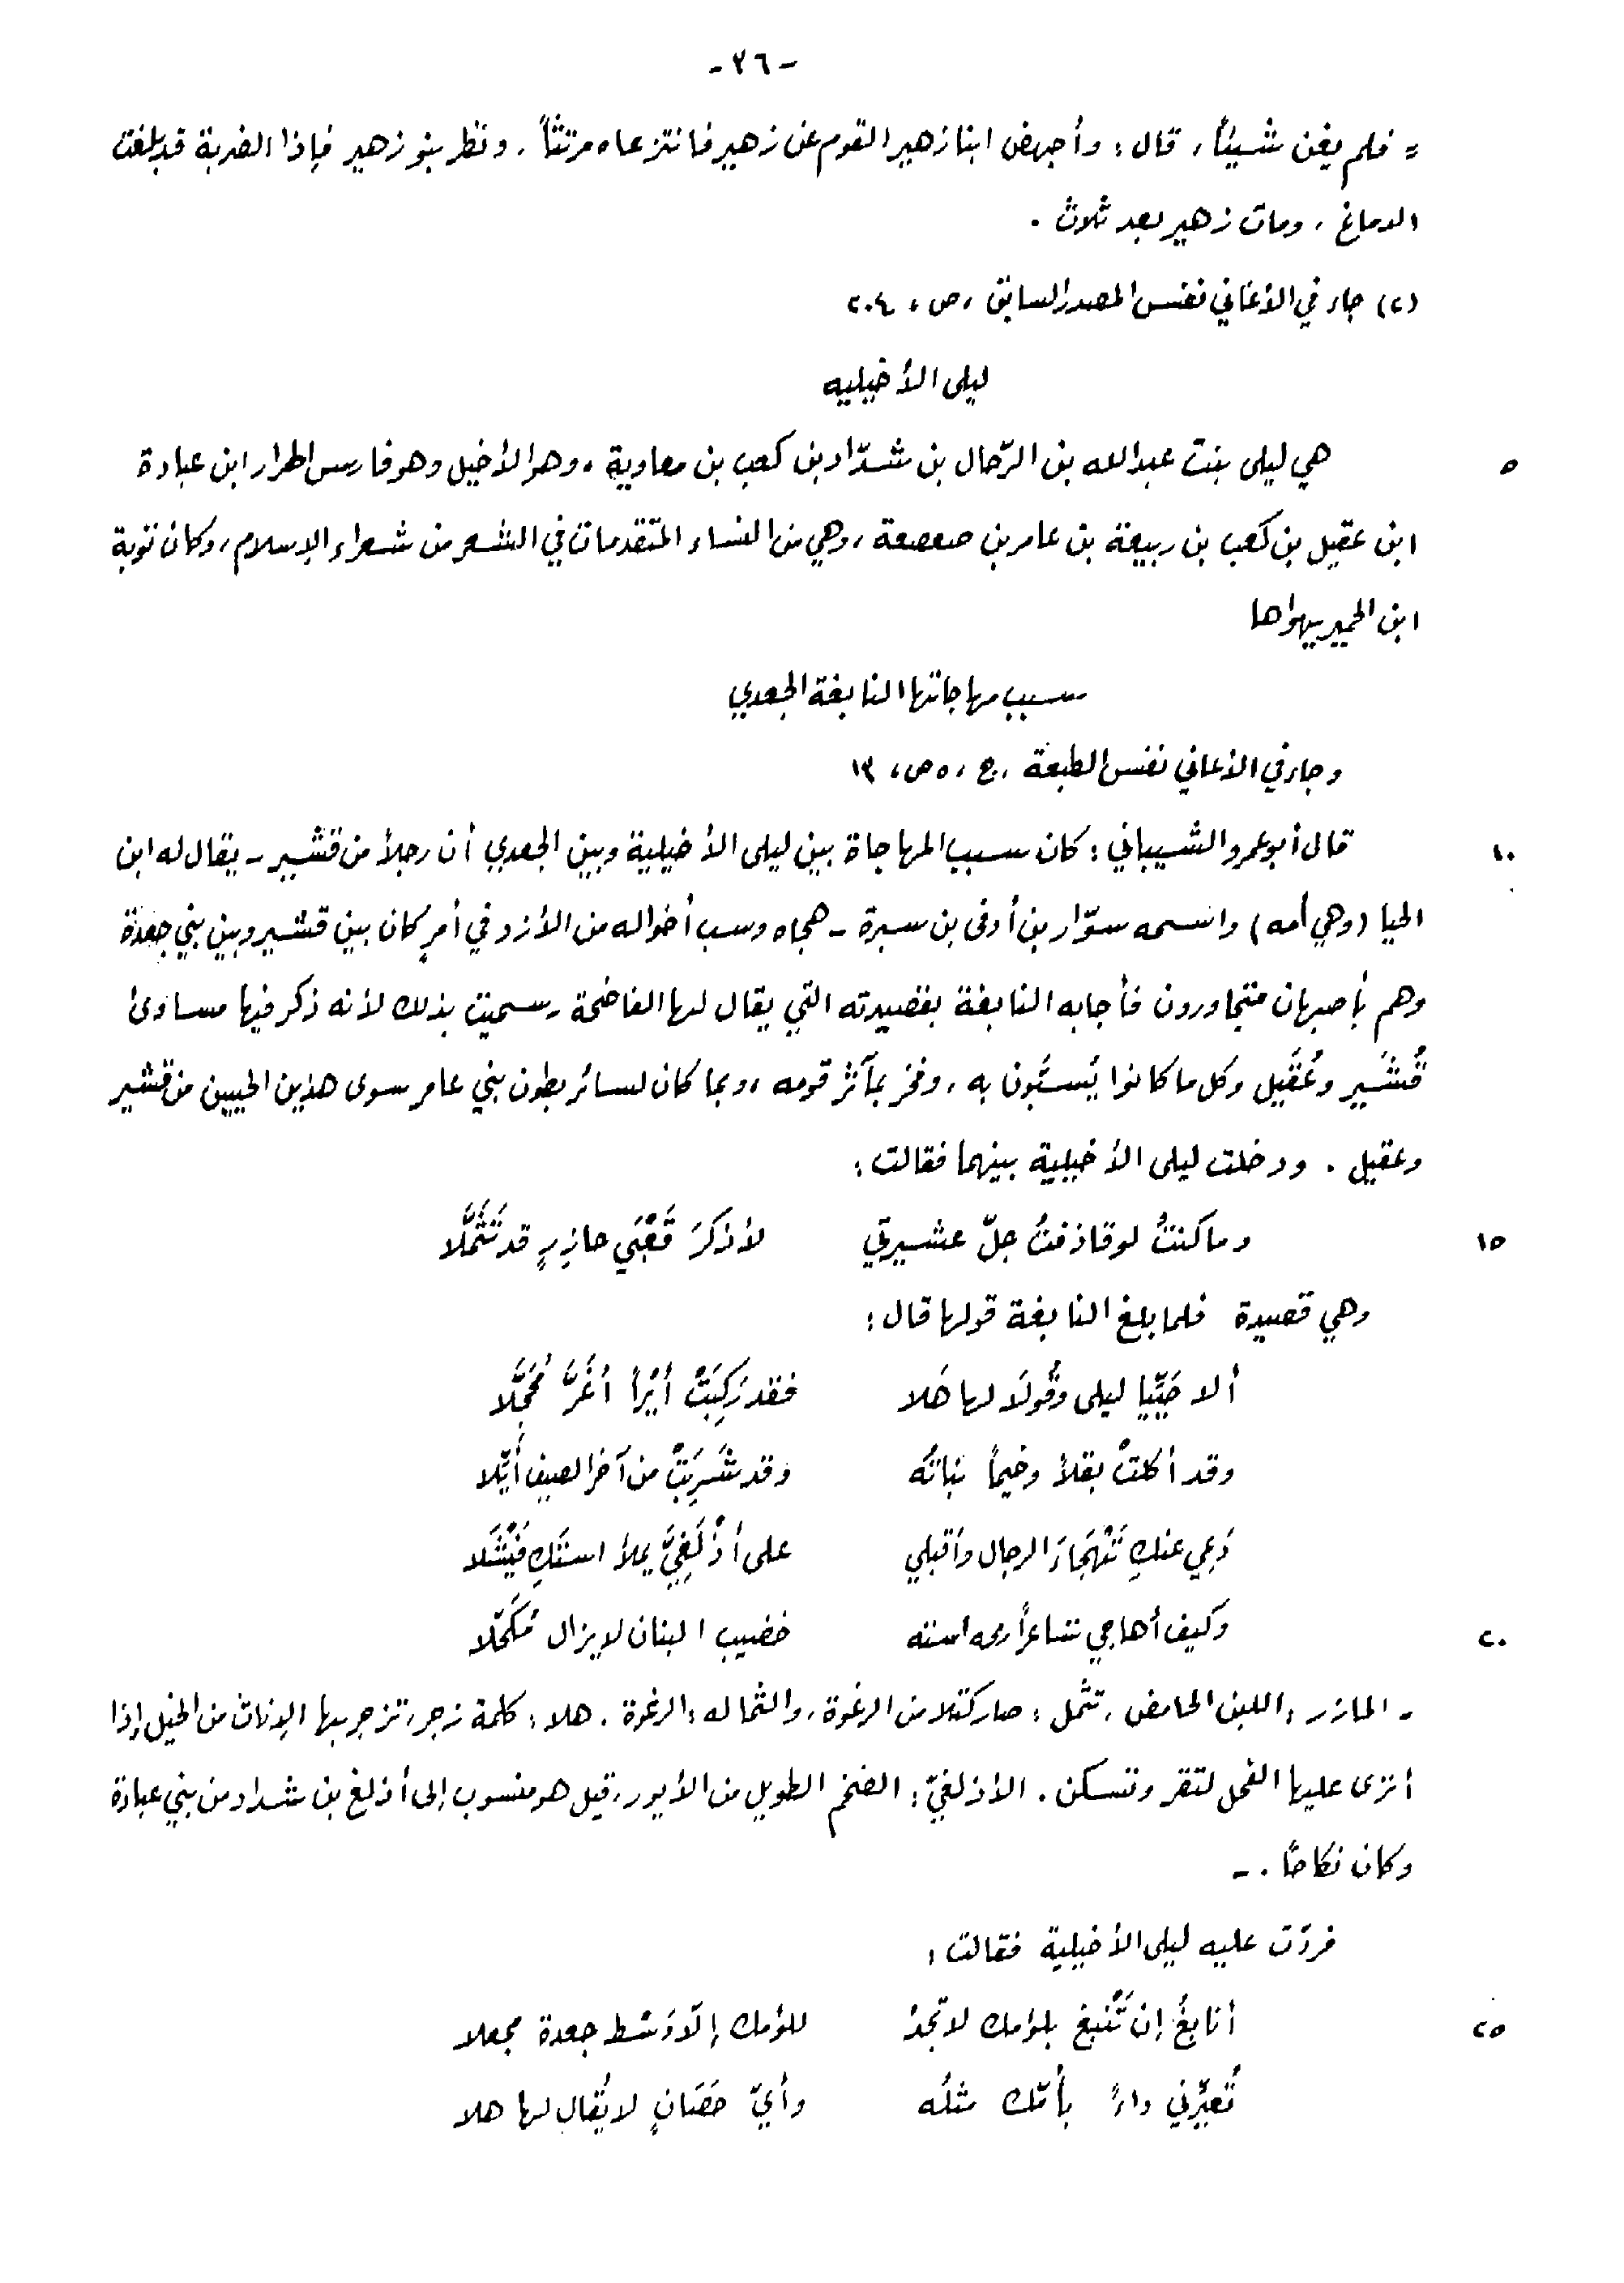 - ٢٦ -
= فلم يغن شيئاً، قال: وأجهض ابنا زهير القوم عن زهير فانتزعاه مرتثاً. ونظر بنو زهير فإذا الضربة قد بلغت
الدماغ، ومات زهير بعد ثلاث.
(٢) جاء في الأغاني نفس المصدر السابق، ص، ٢٠٤
ليلى الأخيليه
٥ هي ليلى بنت عبدالله بن الرّحال بن شدّاد بن كعب بن معاوية، وهو الأخيل وهو فارس الهرار ابن عبادة
ابن عقيل بن كعب بن ربيعة بن عامر بن صعصعة، وهي من النساء المتقدمات في الشعر من شعراء الإسلام، وكان توبة
ابن الحمير يهواها
سبب مهاجاتها النابغة الجعدي
وجاء في الأغاني نفس الطبعة، ج، ٥ ص، ١٣
١٠ قال أبو عمرو الشيباني: كان سبب المهاجاة بين ليلى الأخيلية وبين الجعدي أن رجلاً من قشير - يقال له ابن
الحيا (وهي أمه) واسمه سوّار بن أوفى بن سبرة - هجاه وسب أخواله من الأزد في أمرٍ كان بين قشير وبين بني جعدة
وهم بأصبهان متجاورون فأجابه النابغة بقصيدته التي يقال لها الفاضحة، سميت بذلك لأنه ذكر فيها مساوئ
قُشَير وعُقَيل وكل ما كانوا يُسبُّون به، وفخر بمآثر قومه، وبما كان لسائر بطون بني عامر سوى هذين الحيين من قشير
وعقيل. ودخلت ليلى الأخيلية بينهما فقالت:
١٥ وما كنتُ لو قاذفتُ جلّ عشيرتي لأذكرَ قَعْبَي حازِرٍ قد تَثَمَّلا
وهي قصيدة فلما بلغ النابغة قولها قال:
ألا حَيِّيا ليلى وقُولَا لها هَلا فقد رَكِبَتْ أيْراً أغَرَّ مُحَجَّلا
وقد أكلتْ بقلاً وخيماً نباتُه وقد شَرِبَتْ من آخر الصيف أُيَّلا
دَعِي عنكِ تَهْجَاءَ الرجال وأَقبلي على أذْلَغِيَّ يملأ استَكِ فَيْشَلا
٢٠ وكيف أهاجي شاعراً رمحه استه خضيب البنان لا يزال مُكَحَّلا
- الحازر: اللبن الحامض، تثمل: صار كتلا من الرغوة، والثماله: الرغوة. هلا: كلمة زجر، تزجر بها الإناث من الخيل إذا
أنزى عليها الفحل لتقر وتسكن. الأذلغيّ: الضخم الطويل من الأيور، قيل هو منسوب إلى أذلغ بن شداد من بني عبادة
وكان نكاحًا. -
فردّت عليه ليلى الأخيلية فقالت:
٢٥ أنابغُ إن تَنْبغ بلؤمك لا تجدْ للؤمك إلّا وَسْط جعدة مجعلا
تُعيِّرني داءً بأُمّك مثلُه وأيّ حَصَانٍ لا يُقال لها هلا